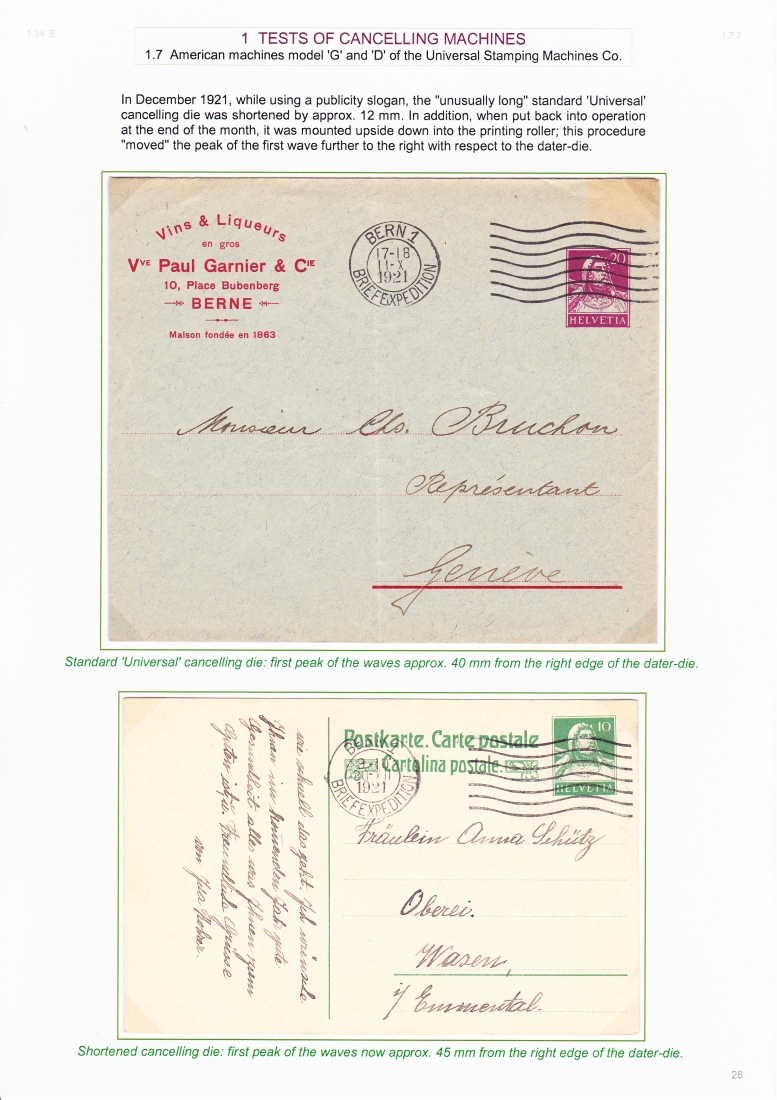 1.34 E
1.7.7
1 TESTS OF CANCELLING MACHINES
1.7 American machines model 'G' and 'D' of the Universal Stamping Machines Co.
In December 1921, while using a publicity slogan, the "unusually long" standard 'Universal'
cancelling die was shortened by approx. 12 mm. In addition, when put back into operation
at the end of the month, it was mounted upside down into the printing roller; this procedure
"moved" the peak of the first wave further to the right with respect to the dater-die.
Vins & Liqueurs
en gros
Vve Paul Garnier & Cie
10, Place Bubenberg
BERNE
Maison fondée en 1863
BERN 1
17-18
11-X
1921
BRIEFEXPEDITION
20
HELVETIA
Monsieur Chs. Bruchon
Représentant
Genève
Standard 'Universal' cancelling die: first peak of the waves approx. 40 mm from the right edge of the dater-die.
wie schnell das geht. Ich wünsche
Ihnen im kommenden Jahr gute
Gesundheit alles was Ihnen zum
Freundliche Grüsse
von
Postkarte. Carte postale
Cartolina postale.
BERN 1
1921
BRIEFEXPEDITION
10
HELVETIA
Fräulein Anna Schütz
Oberei.
Wasen,
i/ Emmental.
Shortened cancelling die: first peak of the waves now approx. 45 mm from the right edge of the dater-die.
26